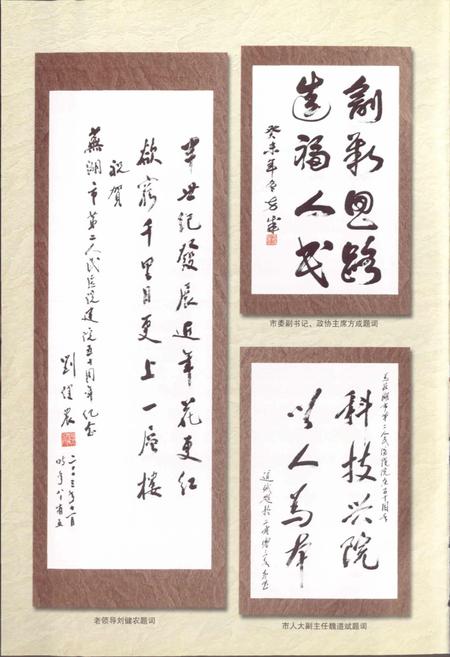 半世纪发展近年花更红
欲穷千里目更上一层楼
祝贺
芜湖市第二人民医院建院五十周年纪念
劉健农
二〇〇三年十一月
时年八十有五
老领导刘健农题词
創新思路
造福人民
癸未年冬方成
市委副书记、政协主席方成题词
科技兴院
以人为本
市人大副主任魏道斌题词